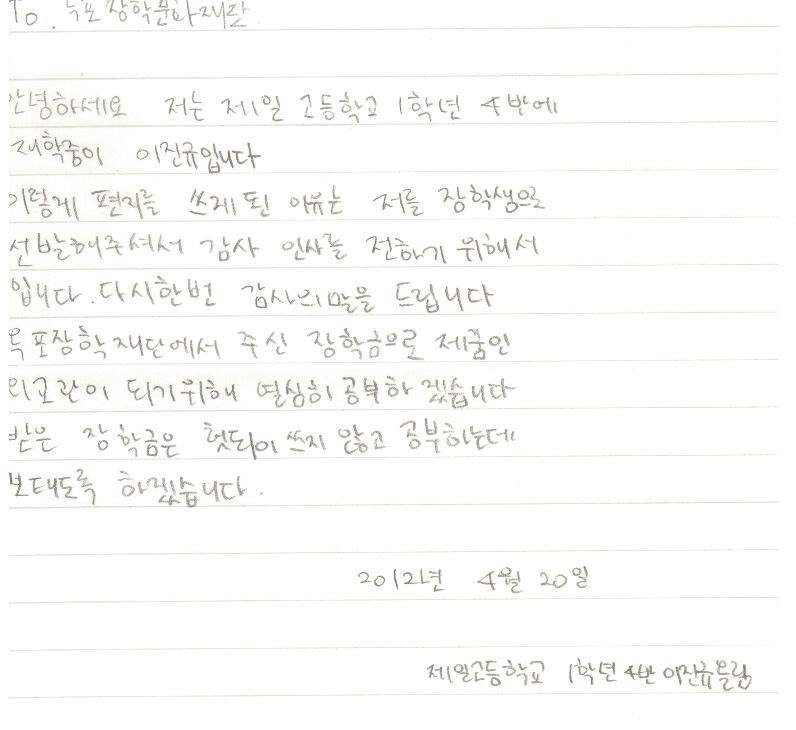 To. 목포장학문화재단
안녕하세요 저는 제일 고등학교 1학년 4반에
재학중이 이진규입니다
이렇게 편지를 쓰게 된 이유는 저를 장학생으로
선발해주셔서 감사 인사를 전하기 위해서
입니다. 다시한번 감사의말을 드립니다
목포장학재단에서 주신 장학금으로 제꿈인
외교관이 되기위해 열심히 공부하겠습니다
받은 장학금은 헛되이 쓰지 않고 공부하는데
보태도록 하겠습니다.
2012년 4월 20일
제일고등학교 1학년 4반 이진규올림